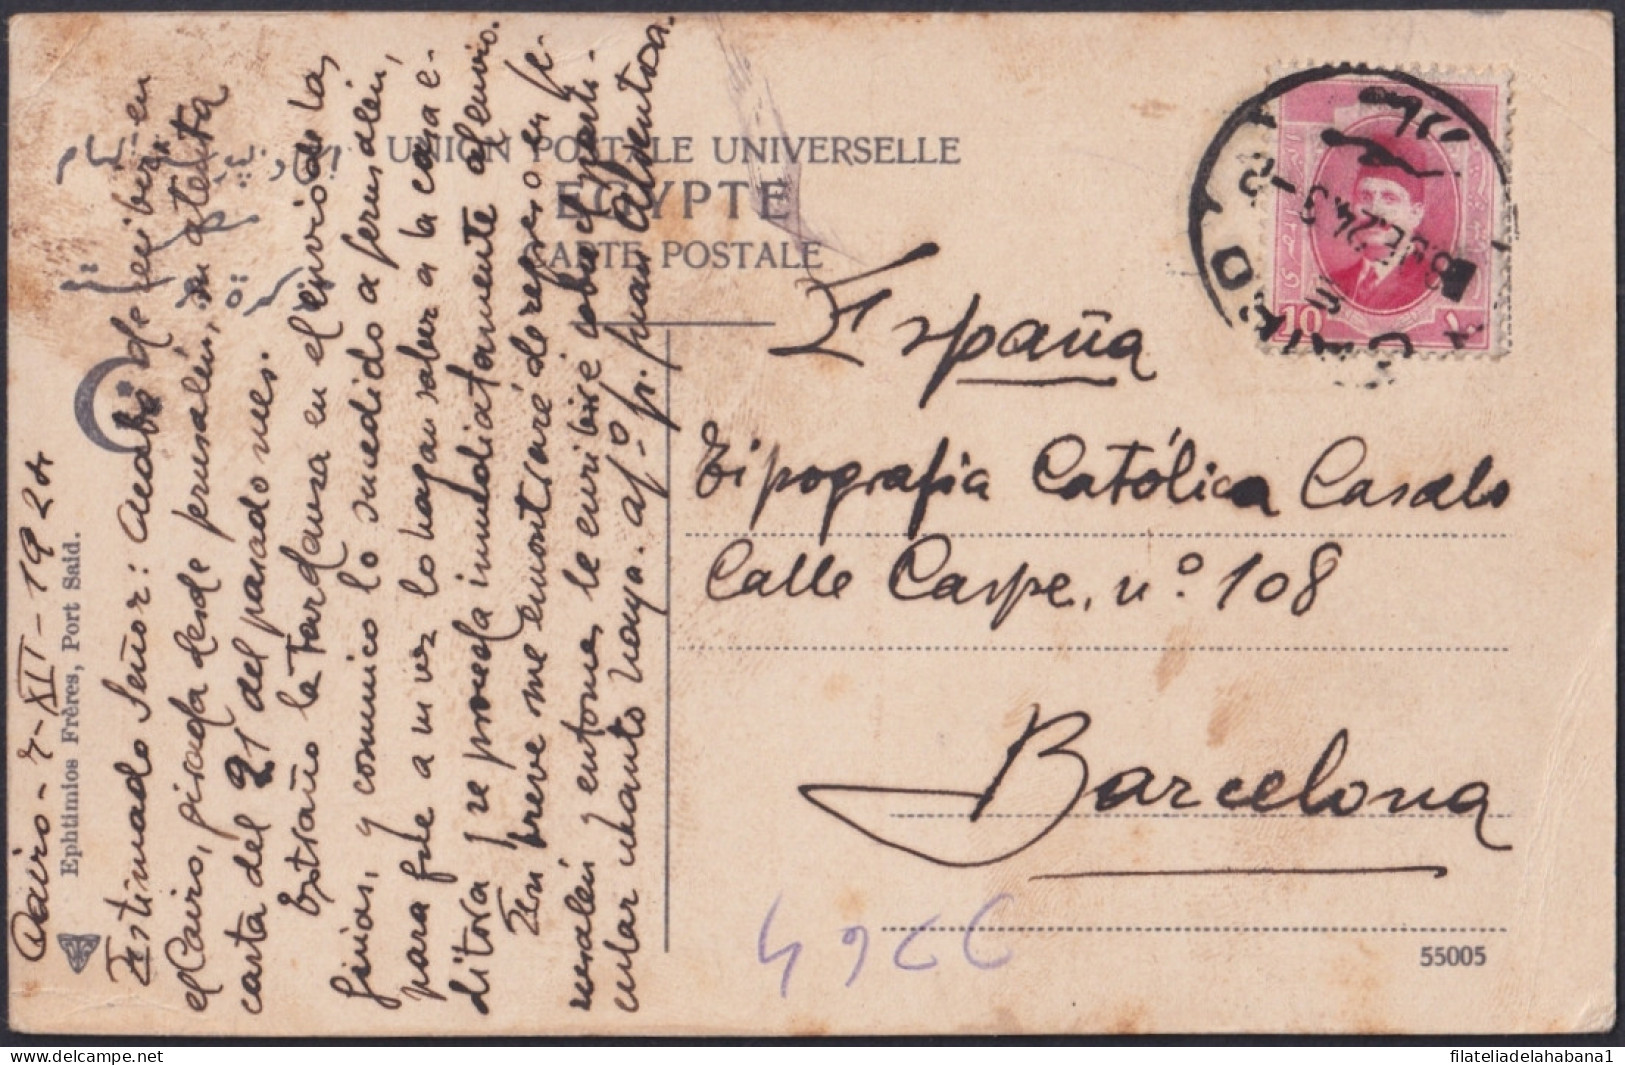 Cairo - 7 - XII - 1924
Estimado Señor: Acabo de recibir en
el Cairo, girada desde Jerusalén, su atenta
carta del 21 del pasado mes.
Extraño la tardanza en el envío de las
y comunico lo sucedido a Jerusalén,
para que a su vez lo hagan saber a la casa e-
ditora y se proceda inmediatamente al envío.
En breve me encontraré de regreso en Je-
rusalén y entonces le escribiré sobre el parti-
cular cuanto haya.
Ephtimios Frères, Port Said.
UNION POSTALE UNIVERSELLE
EGYPTE
CARTE POSTALE
CAIRO
10
España
Tipografía Católica Casals
Calle Caspe, nº 108
Barcelona
55005
delcampe.net
filateliadelahabana1